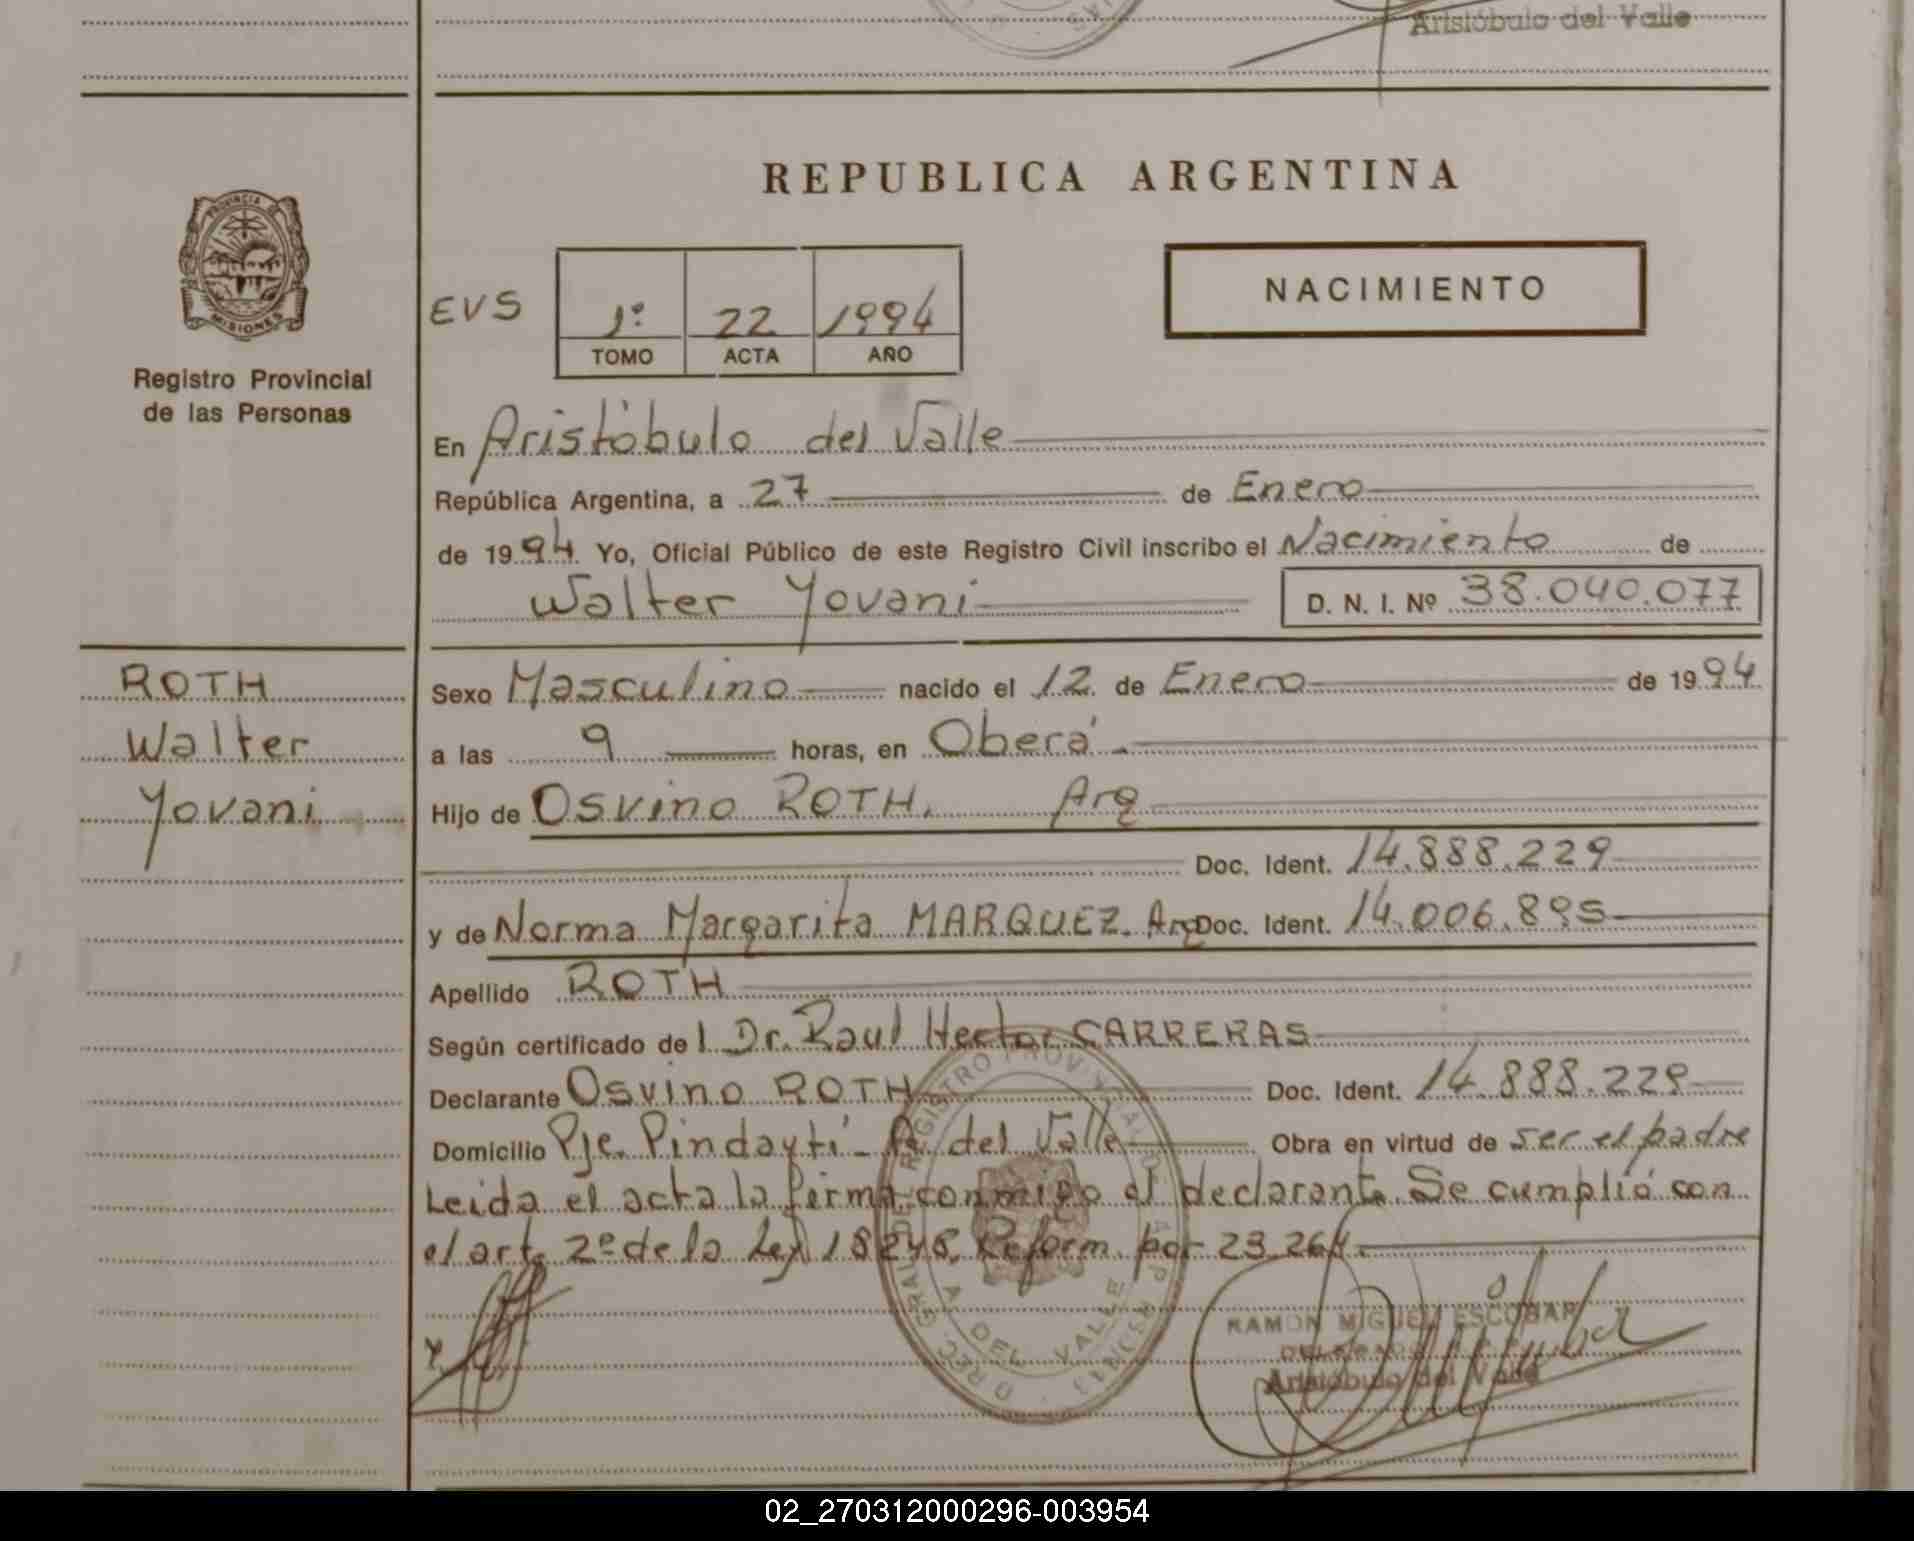 Aristóbulo del Valle
REPUBLICA ARGENTINA
PROVINCIA DE
MISIONES
Registro Provincial
de las Personas
EVS
1º 22 1994
TOMO ACTA AÑO
NACIMIENTO
En Aristóbulo del Valle
República Argentina, a 27 de Enero
de 1994 Yo, Oficial Público de este Registro Civil inscribo el Nacimiento de
Walter Yovani D. N. I. Nº 38.040.077
ROTH
Walter
Yovani
Sexo Masculino nacido el 12 de Enero de 1994
a las 9 horas, en Oberá.
Hijo de Osvino ROTH. Arg
Doc. Ident. 14.888.229
y de Norma Margarita MARQUEZ. Arg Doc. Ident. 14.006.895
Apellido ROTH
Según certificado del Dr. Raul Hector CARRERAS
Declarante Osvino ROTH Doc. Ident. 14.888.229
Domicilio Pje. Pindaytí - A. del Valle Obra en virtud de ser el padre
Leida el acta la firma conmigo el declarante. Se cumplió con
el art. 2º de la Ley 18248. Reform. por 23.264.
RAMON MIGUEL ESCOBAR
Aristóbulo del Valle
A. DEL VALLE
02_270312000296-003954